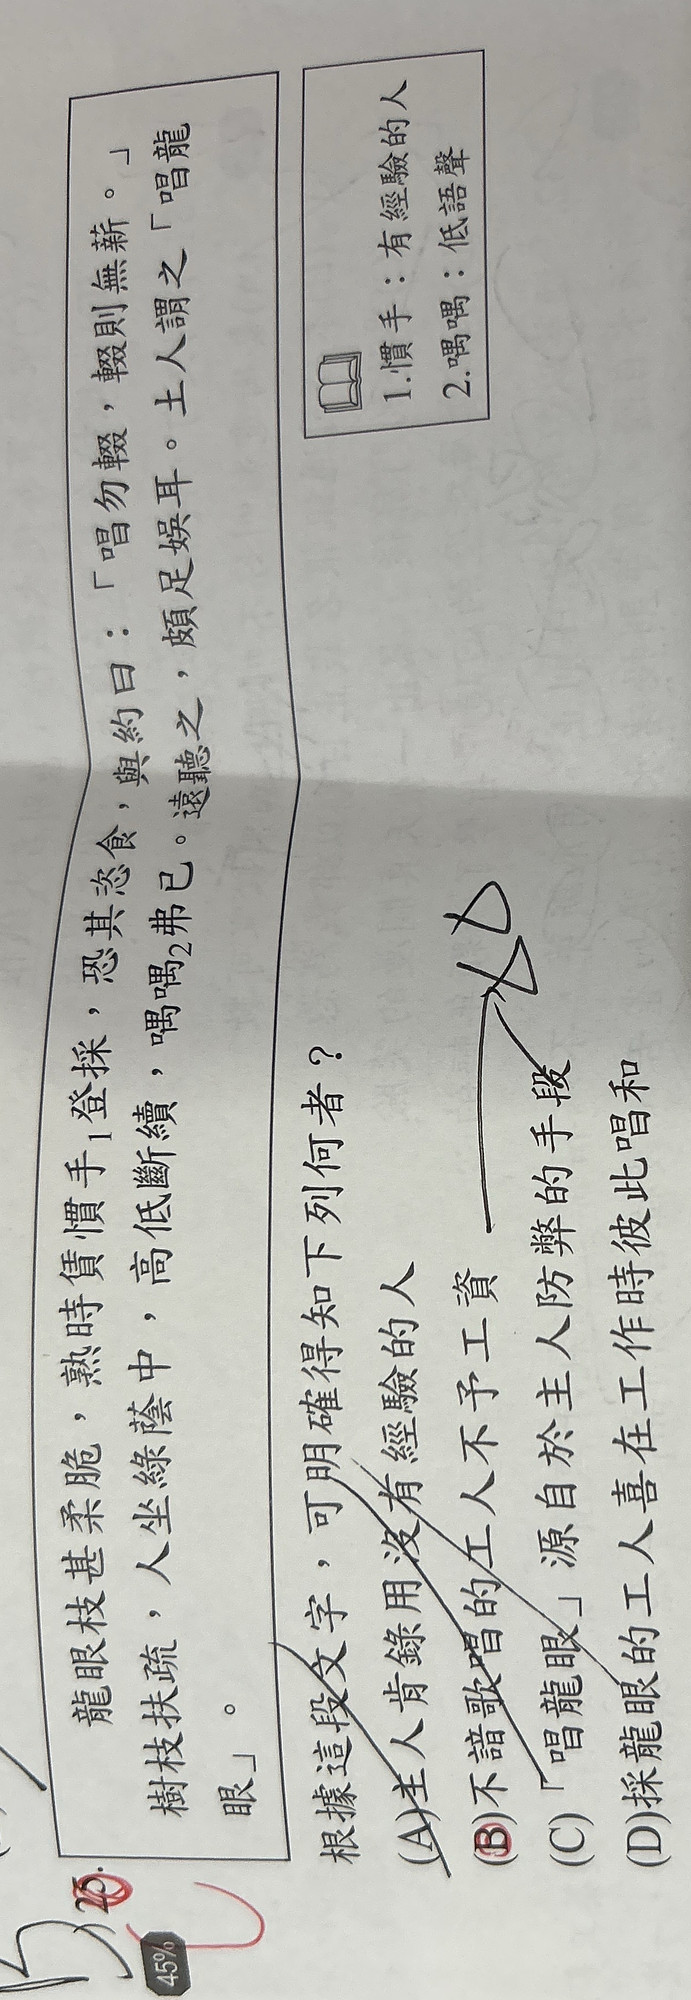 龍眼枝甚柔脆，熟時賃慣手1登採，恐其恣食，與約曰：「唱勿輟，輟則無薪。」
樹枝扶疏，人坐綠蔭中，高低斷續，喁喁2弗已。遠聽之，頗足娛耳。土人謂之「唱龍
眼」。
1.慣手：有經驗的人
2.喁喁：低語聲
45%
根據這段文字，可明確得知下列何者？
(A)主人肯錄用沒有經驗的人
(B)不諳歌唱的工人不予工資
(C)「唱龍眼」源自於主人防弊的手段
(D)採龍眼的工人喜在工作時彼此唱和